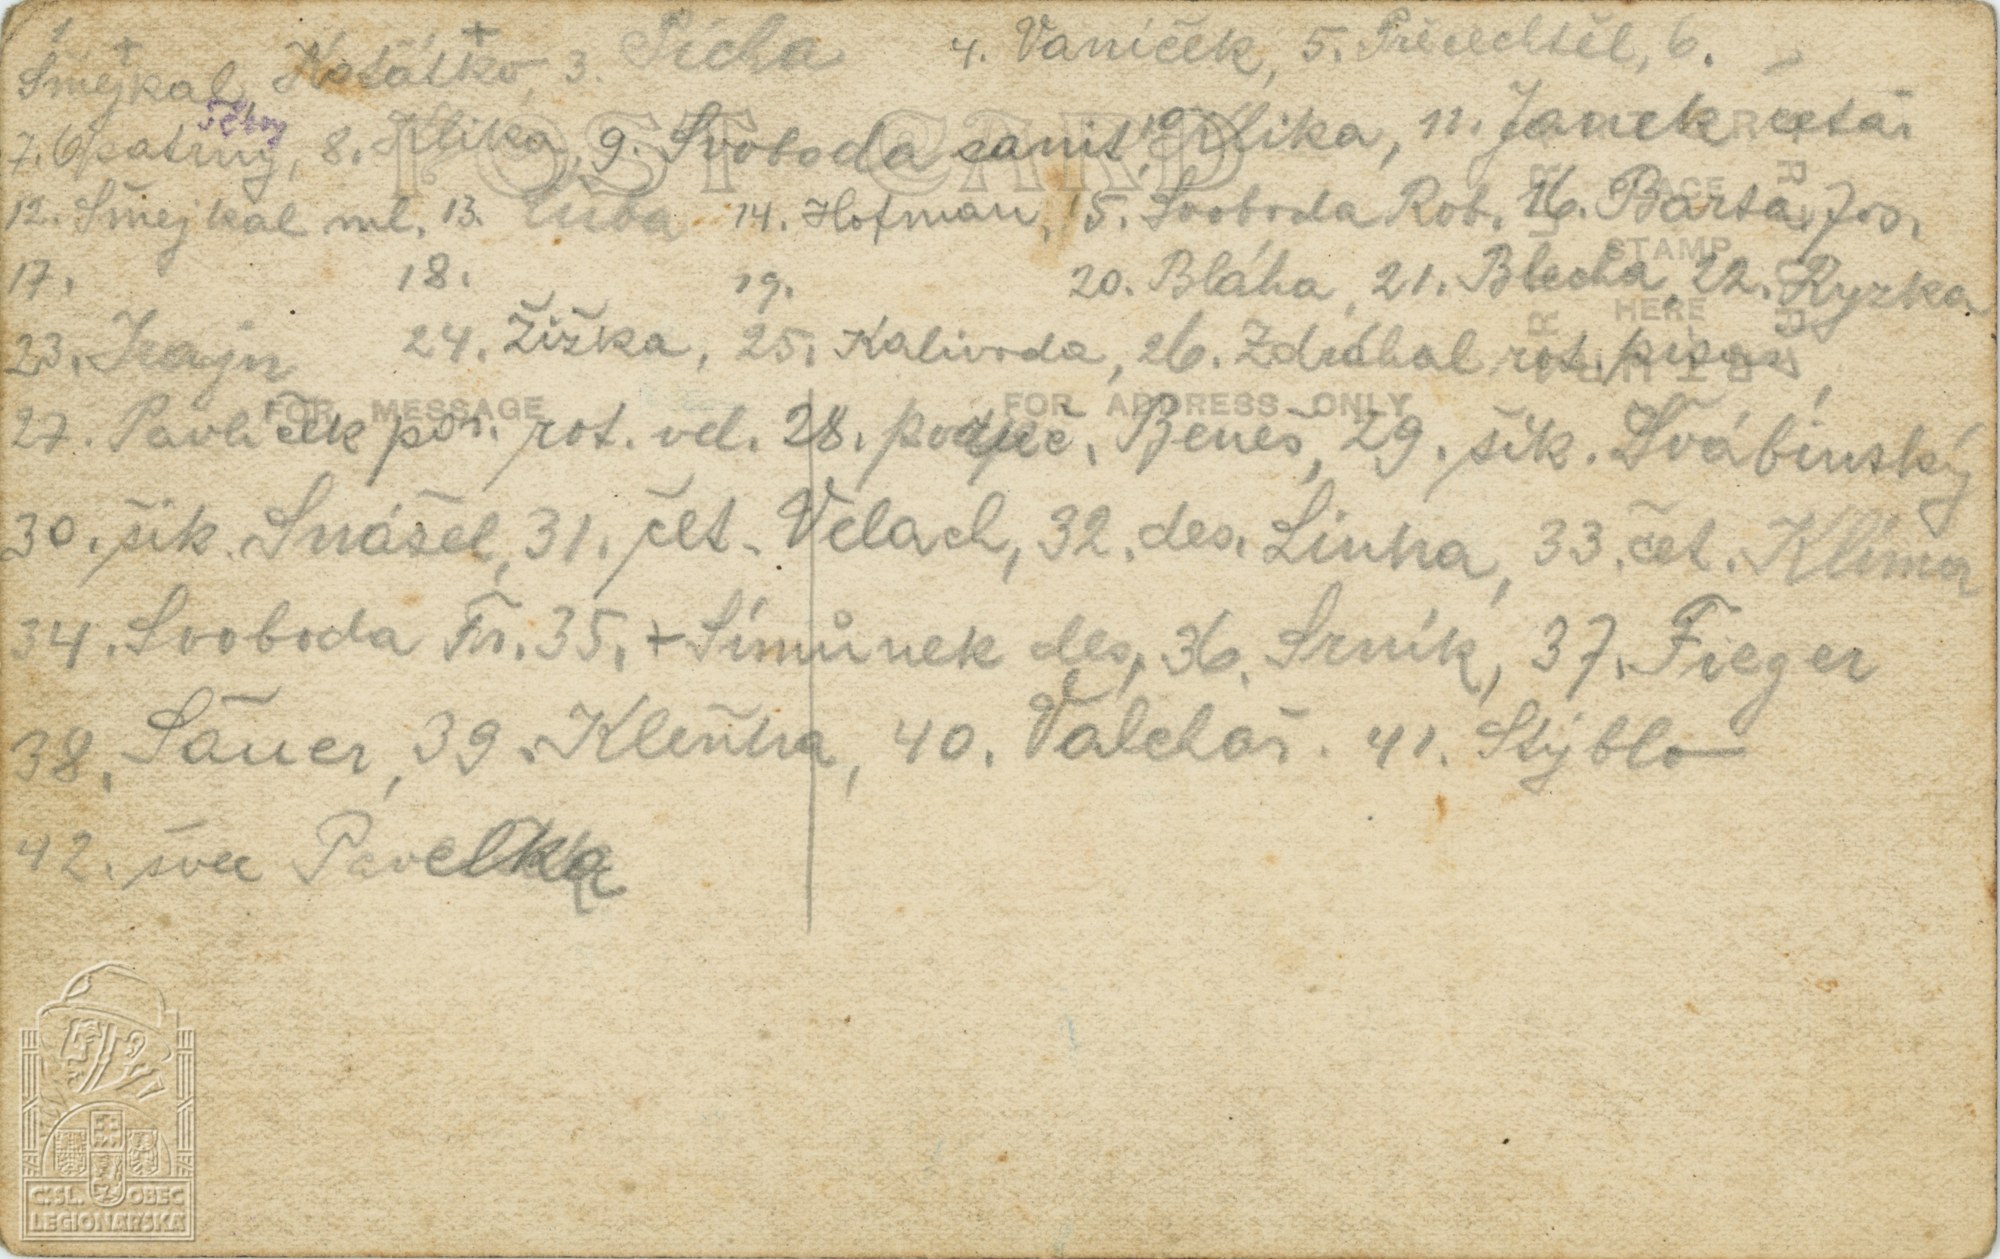 1 + Smejkal, Košátko +, 3. Pícha 4. Vaníček, 5. Přecechtěl, 6. —
7. Opatrný, 8. Hlika, 9. Svoboda sanit, 10 Hlika, 11. Janek četař
12. Šmejkal ml, 13. Ciba 14. Hofman, 15. Svoboda Rob. 16. Barta Jos.
17. 18. 19. 20. Bláha, 21. Blecha, 22. Ryzka
23. Trajn 24. Žižka, 25. Kalivoda, 26. Zdráhal rot. písař,
27. Pavlíček por. rot. vel. 28. podpč. Beneš, 29. šik. Švábinský
30. šik. Snášel, 31. čet. Velach, 32. des. Linha, 33. čet. Klíma
34. Svoboda Fr. 35. + Símůnek des, 36. Srník, 37. Fieger
38. Sauer, 39. Kleňha, 40. Valchař. 41. Stýblo
42. švec Pavelka
POST CARD
PLACE
STAMP
HERE
FOR MESSAGE FOR ADDRESS ONLY
ČSL. OBEC
LEGIONÁŘSKÁ